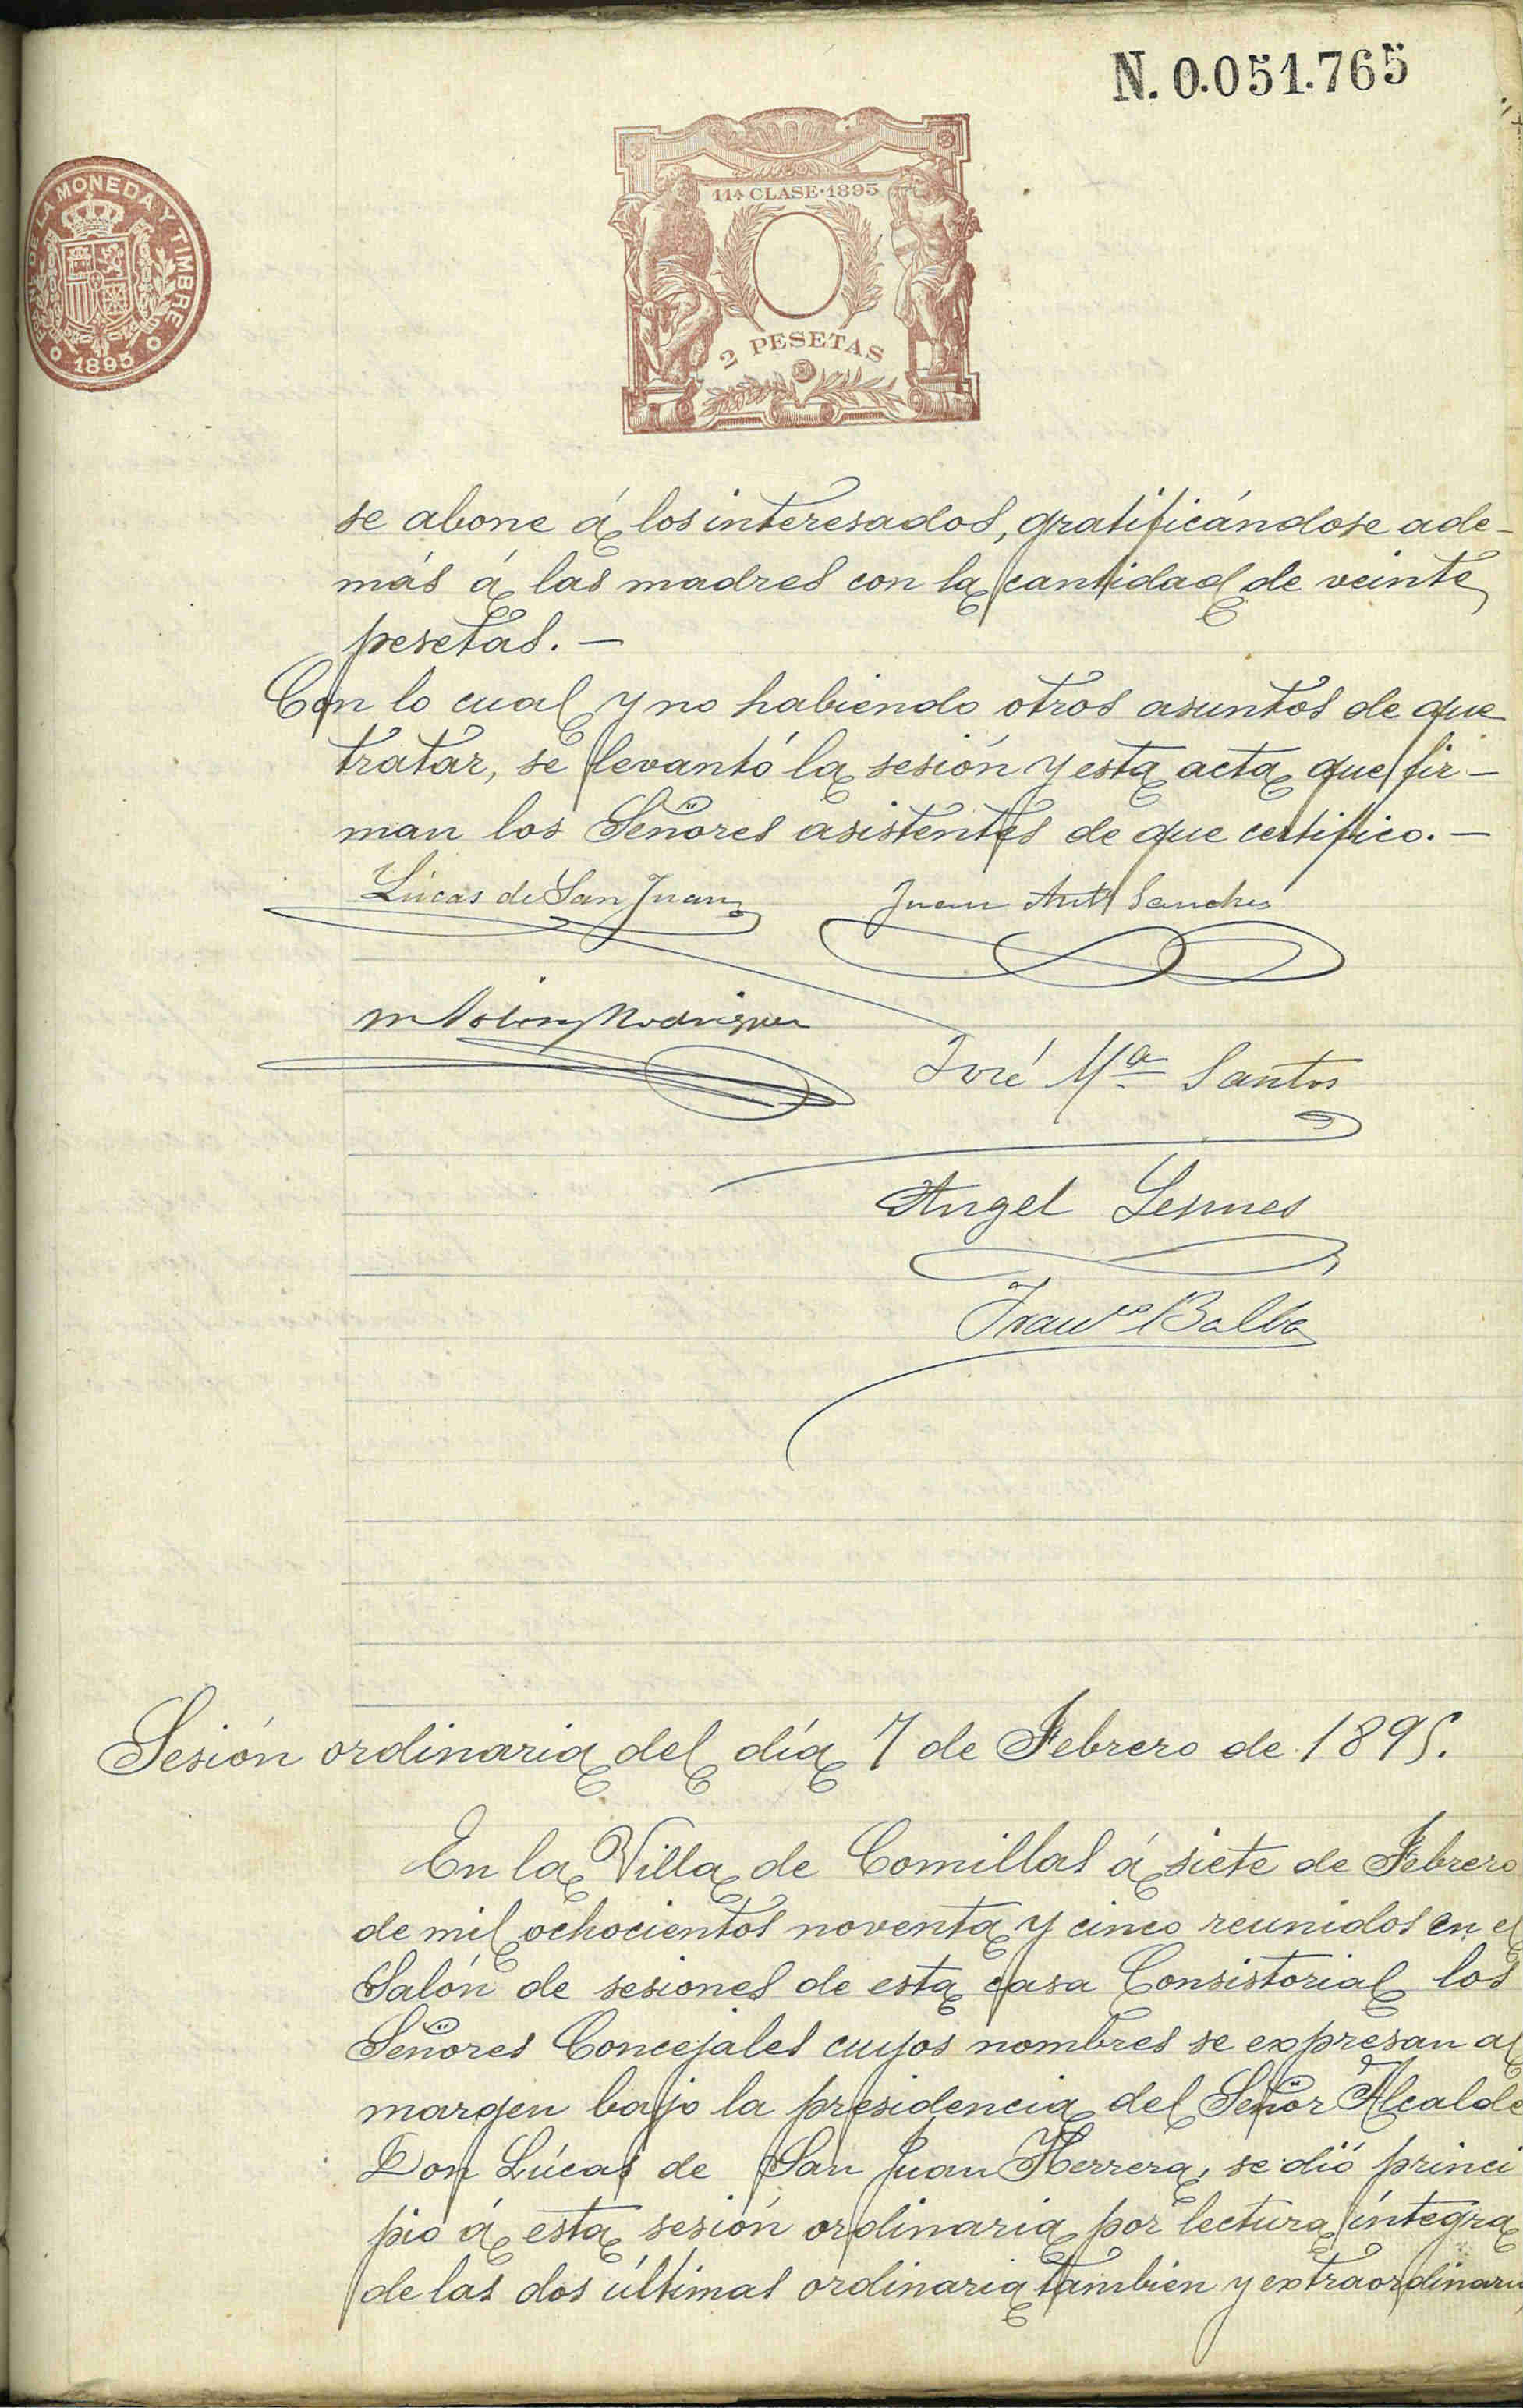 N. 0.051.765
FÁBRICA DE LA MONEDA Y TIMBRE
1895
11ª CLASE·1895
2 PESETAS
se abone á los interesados, gratificándose ade-
más á las madres con la cantidad de veinte
pesetas.—
Con lo cual y no habiendo otros asuntos de que
tratar, se levantó la sesión y esta acta que fir-
man los Señores asistentes de que certifico.—
Lúcas de San Juan
Juan Antº Sanchez
Rodriguez
José Mª Santos
Angel
Franco Balbas
Sesión ordinaria del día 7 de Febrero de 1895.
En la Villa de Comillas á siete de Febrero
de mil ochocientos noventa y cinco reunidos en el
Salón de sesiones de esta casa Consistorial los
Señores Concejales cuyos nombres se expresan al
margen bajo la presidencia del Señor Alcalde
Don Lúcas de San Juan Herrera, se dió princi
pio á esta sesión ordinaria por lectura íntegra
de las dos últimas ordinaria también y extraordinaria